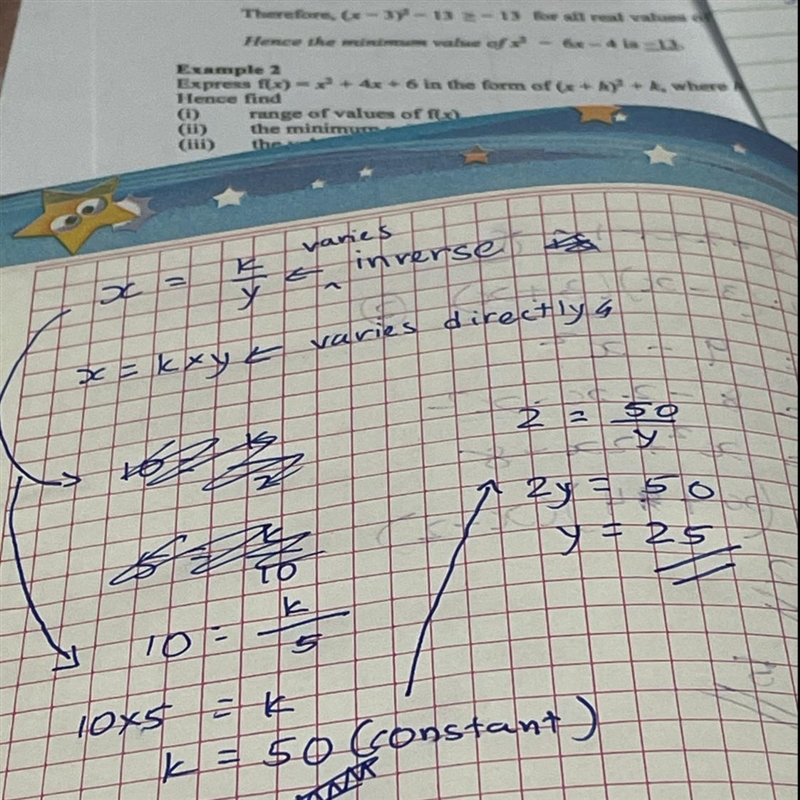 Therefore, (x − 3)² − 13 ≥ − 13 for all real values of
Hence the minimum value of x² − 6x − 4 is −13.
Example 2
Express f(x) = x² + 4x + 6 in the form of (x + h)² + k, where
Hence find
(i) range of values of f(x)
(ii) the minimum
(iii) the
x = k/y ← varies inverse
x = k × y ← varies directly
10 = k/5
10×5 = k
k = 50 (constant)
2 = 50/y
2y = 50
y = 25